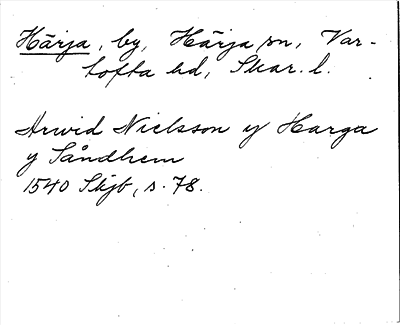 Härja, by, Härja sn, Var-
tofta hd, Skar. l.
Arwid Nielsson y Harga
y Såndhem
1540 Skjb, s. 78.